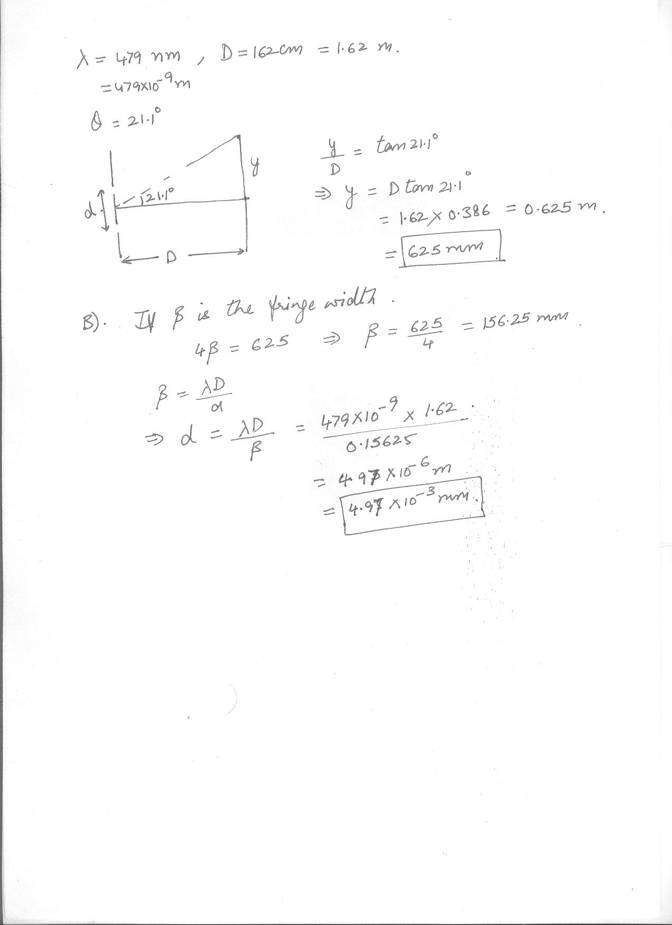 λ = 479 nm , D = 162cm = 1.62 m.
= 479×10⁻⁹m
θ = 21.1°
y
d
21.1°
D
y/D = tan 21.1°
⇒ y = D tan 21.1°
= 1.62 × 0.386 = 0.625 m.
= 625 mm
B). If β is the fringe width.
4β = 625 ⇒ β = 625/4 = 156.25 mm.
β = λD/d
⇒ d = λD/β = 479×10⁻⁹ × 1.62 / 0.15625
= 4.97 ×10⁻⁶ m
= 4.97 ×10⁻³ mm.